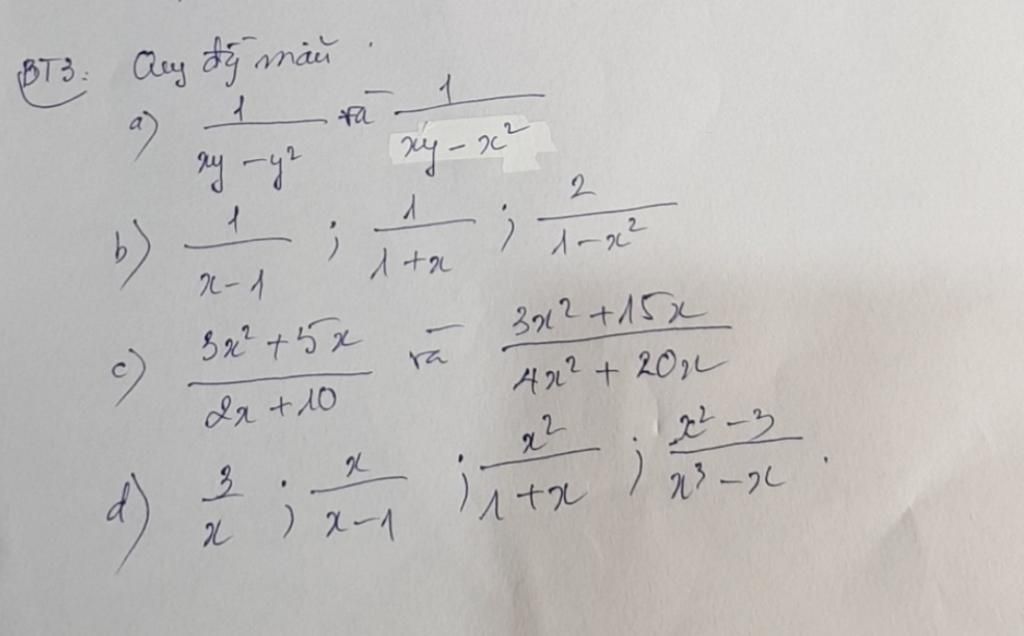 BT3: Quy đg mẫu.
a) 1/(xy - y²) và 1/(xy - x²)
b) 1/(x - 1) ; 1/(1 + x) ; 2/(1 - x²)
c) (3x² + 5x)/(2x + 10) và (3x² + 15x)/(4x² + 20x)
d) 3/x ; x/(x - 1) ; x²/(1 + x) ; (x² - 3)/(x³ - x) .